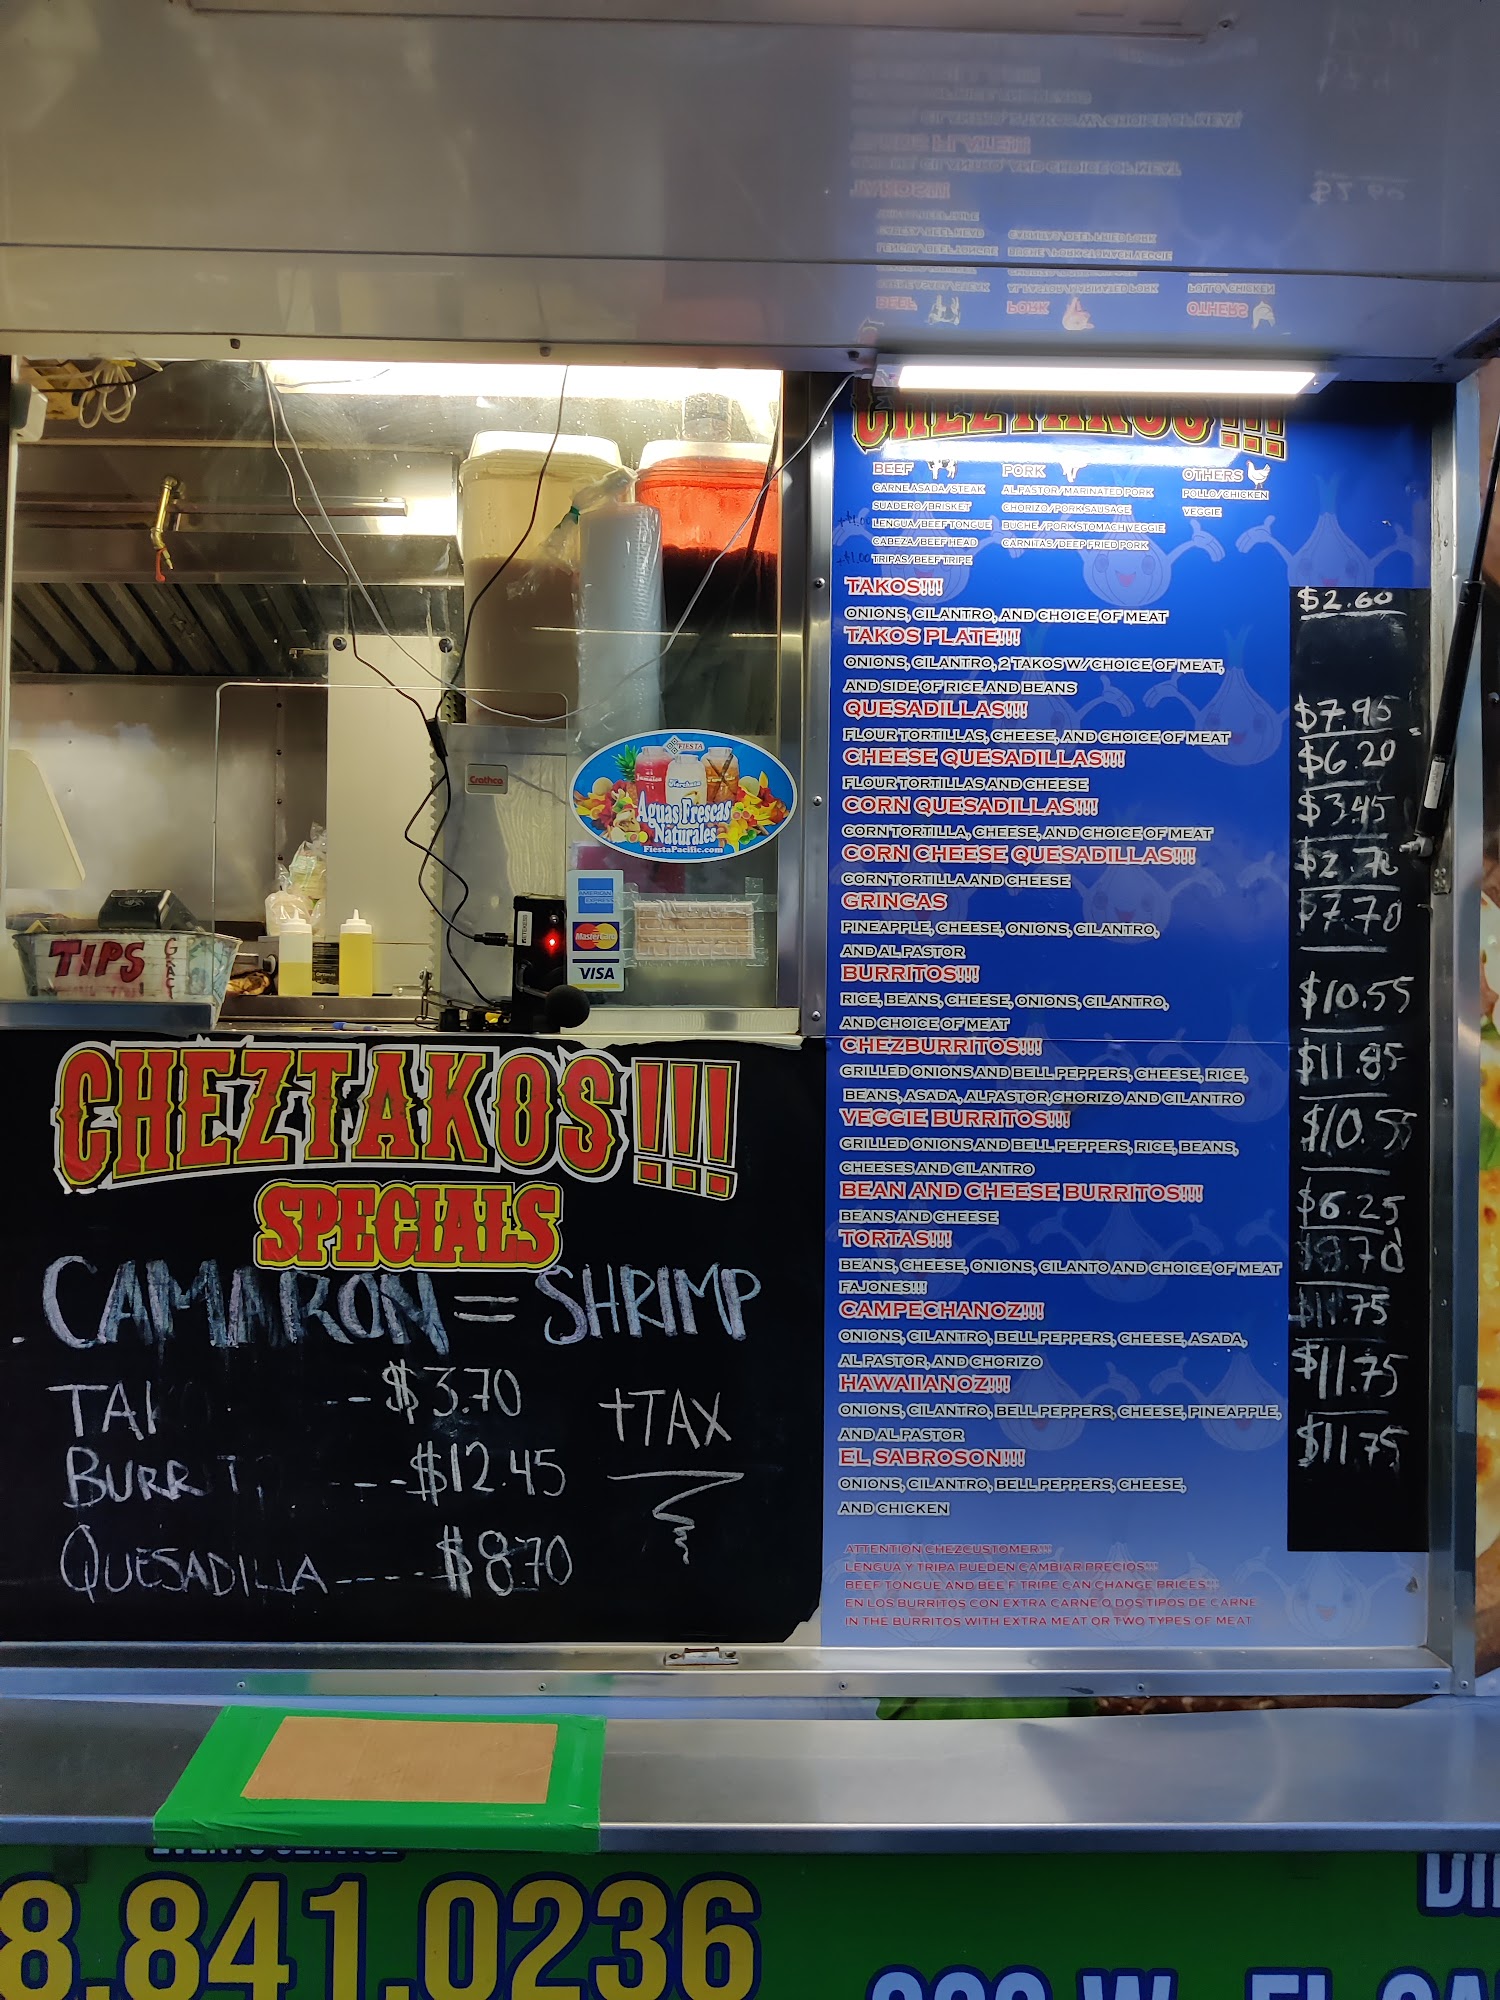 CHEZTAKOS!!!
BEEF
CARNE ASADA/STEAK
SUADERO/BRISKET
LENGUA/BEEF TONGUE
CABEZA/BEEF HEAD
+$1.00 TRIPAS/BEEF TRIPE
PORK
AL PASTOR/MARINATED PORK
CHORIZO/PORK SAUSAGE
BUCHE/PORK STOMACH VEGGIE
CARNITAS/DEEP FRIED PORK
OTHERS
POLLO/CHICKEN
VEGGIE
TAKOS!!! $2.60
ONIONS, CILANTRO, AND CHOICE OF MEAT
TAKOS PLATE!!!
ONIONS, CILANTRO, 2 TAKOS W/CHOICE OF MEAT,
AND SIDE OF RICE AND BEANS
QUESADILLAS!!! $7.95
FLOUR TORTILLAS, CHEESE, AND CHOICE OF MEAT
CHEESE QUESADILLAS!!! $6.20
FLOUR TORTILLAS AND CHEESE
CORN QUESADILLAS!!! $3.45
CORN TORTILLA, CHEESE, AND CHOICE OF MEAT
CORN CHEESE QUESADILLAS!!!
CORN TORTILLA AND CHEESE
GRINGAS $7.70
PINEAPPLE, CHEESE, ONIONS, CILANTRO,
AND AL PASTOR
BURRITOS!!! $10.55
RICE, BEANS, CHEESE, ONIONS, CILANTRO,
AND CHOICE OF MEAT
CHEZBURRITOS!!! $11.85
GRILLED ONIONS AND BELL PEPPERS, CHEESE, RICE,
BEANS, ASADA, ALPASTOR, CHORIZO AND CILANTRO
VEGGIE BURRITOS!!! $10.55
GRILLED ONIONS AND BELL PEPPERS, RICE, BEANS,
CHEESES AND CILANTRO
BEAN AND CHEESE BURRITOS!!! $6.25
BEANS AND CHEESE
TORTAS!!! $8.70
BEANS, CHEESE, ONIONS, CILANTO AND CHOICE OF MEAT
FAJONES!!!
CAMPECHANOZ!!! $11.75
ONIONS, CILANTRO, BELL PEPPERS, CHEESE, ASADA,
AL PASTOR, AND CHORIZO
HAWAIIANOZ!!! $11.75
ONIONS, CILANTRO, BELL PEPPERS, CHEESE, PINEAPPLE,
AND AL PASTOR
EL SABROSON!!! $11.75
ONIONS, CILANTRO, BELL PEPPERS, CHEESE,
AND CHICKEN
ATTENTION CHEZCUSTOMER!!!
LENGUA Y TRIPA PUEDEN CAMBIAR PRECIOS!!!
BEEF TONGUE AND BEEF TRIPE CAN CHANGE PRICES!!!
EN LOS BURRITOS CON EXTRA CARNE O DOS TIPOS DE CARNE
IN THE BURRITOS WITH EXTRA MEAT OR TWO TYPES OF MEAT
Crathco
FIESTA
Jamaica
Horchata
Aguas Frescas
Naturales
FiestaPacific.com
AMERICAN EXPRESS
MasterCard
VISA
TIPS
CHEZTAKOS!!!
SPECIALS
CAMARON = SHRIMP
TA -- $3.70
+TAX
BURRIT ---$12.45
QUESADILLA----$8.70
8.841.0236